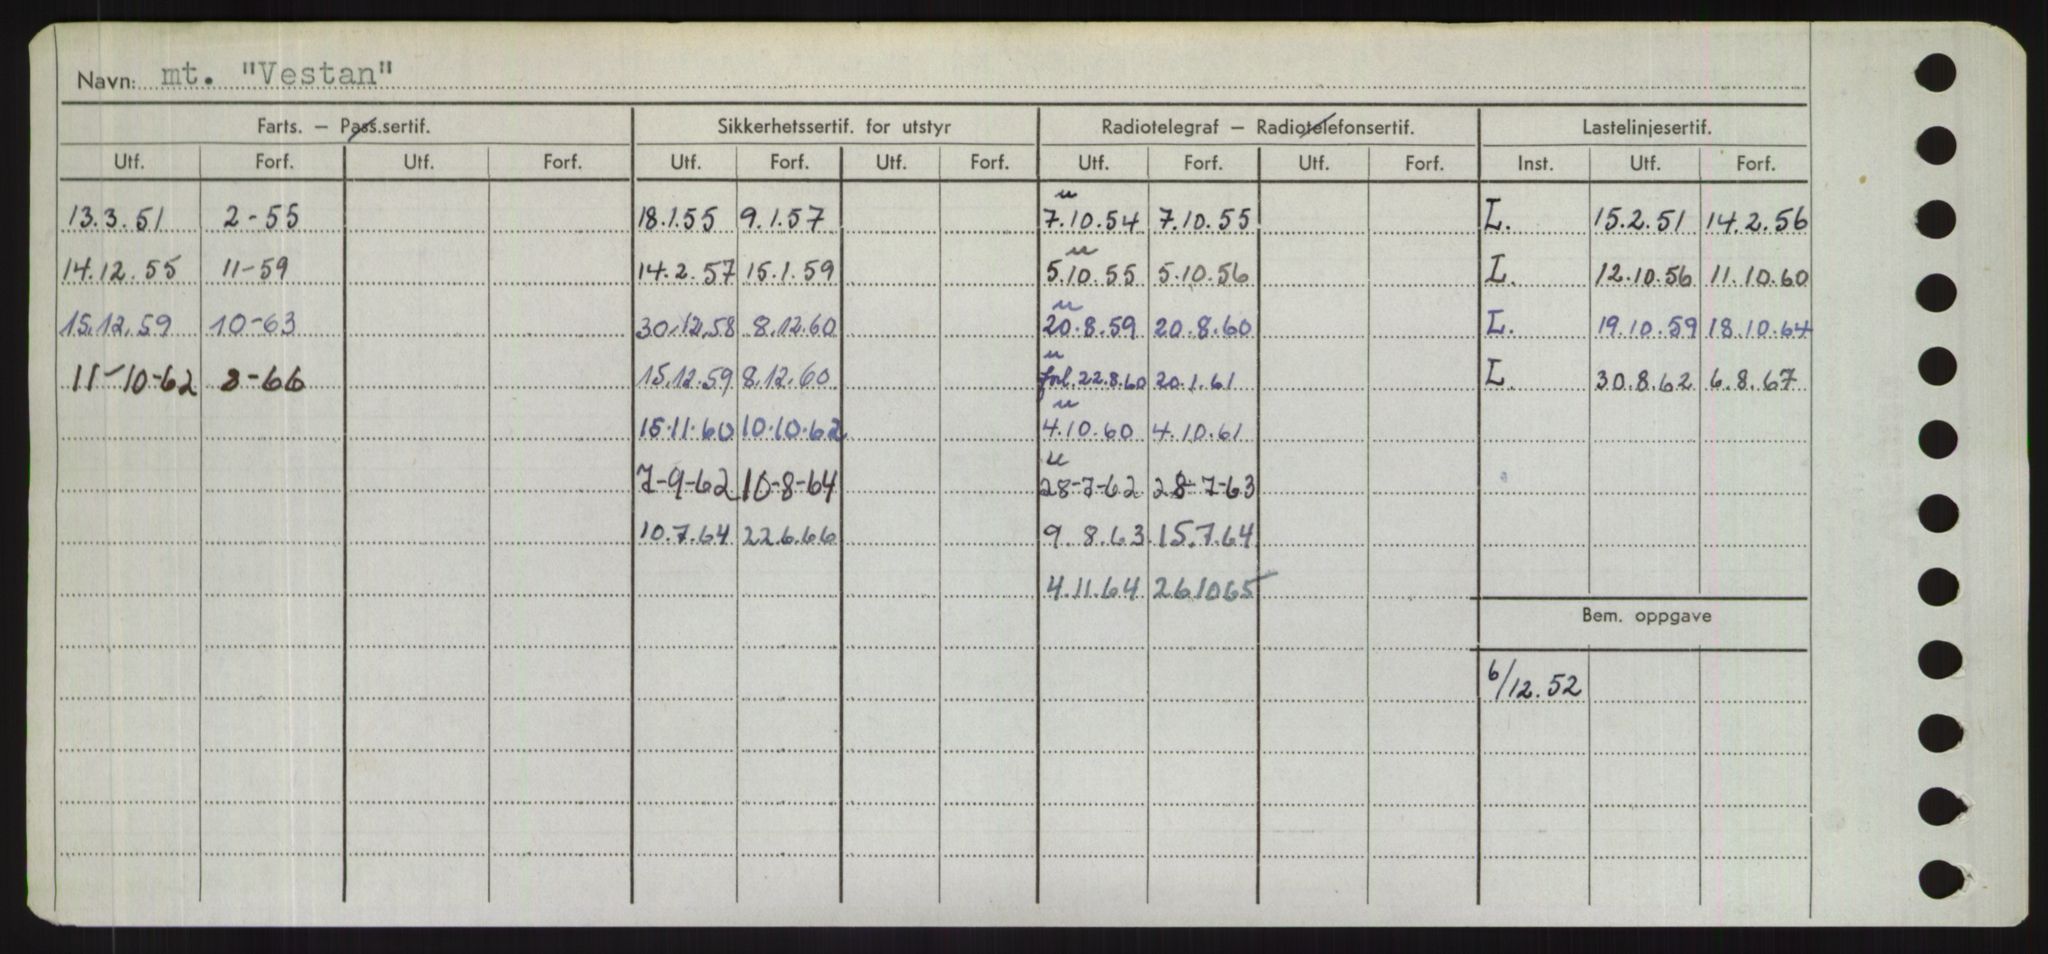 Navn: mt. "Vestan"
Farts. – Pass.sertif. Sikkerhetssertif. for utstyr Radiotelegraf – Radiotelefonsertif. Lastelinjesertif.
Utf. Forf. Utf. Forf. Utf. Forf. Utf. Forf. Utf. Forf. Utf. Forf. Inst. Utf. Forf.
u
13.3.51 2-55 18.1.55 9.1.57 7.10.54 7.10.55 L. 15.2.51 14.2.56
u
14.12.55 11-59 14.2.57 15.1.59 5.10.55 5.10.56 L. 12.10.56 11.10.60
u
15.12.59 10-63 30.12.58 8.12.60 20.8.59 20.8.60 L. 19.10.59 18.10.64
u
11-10-62 8-66 15.12.59 8.12.60 forl. 22.8.60 20.1.61 L. 30.8.62 6.8.67
u
15.11.60 10.10.62 4.10.60 4.10.61
u
7-9-62 10-8-64 28-7-62 28-7-63
10.7.64 22.6.66 9.8.63 15.7.64
4.11.64 26.10.65
Bem. oppgave
6/12.52